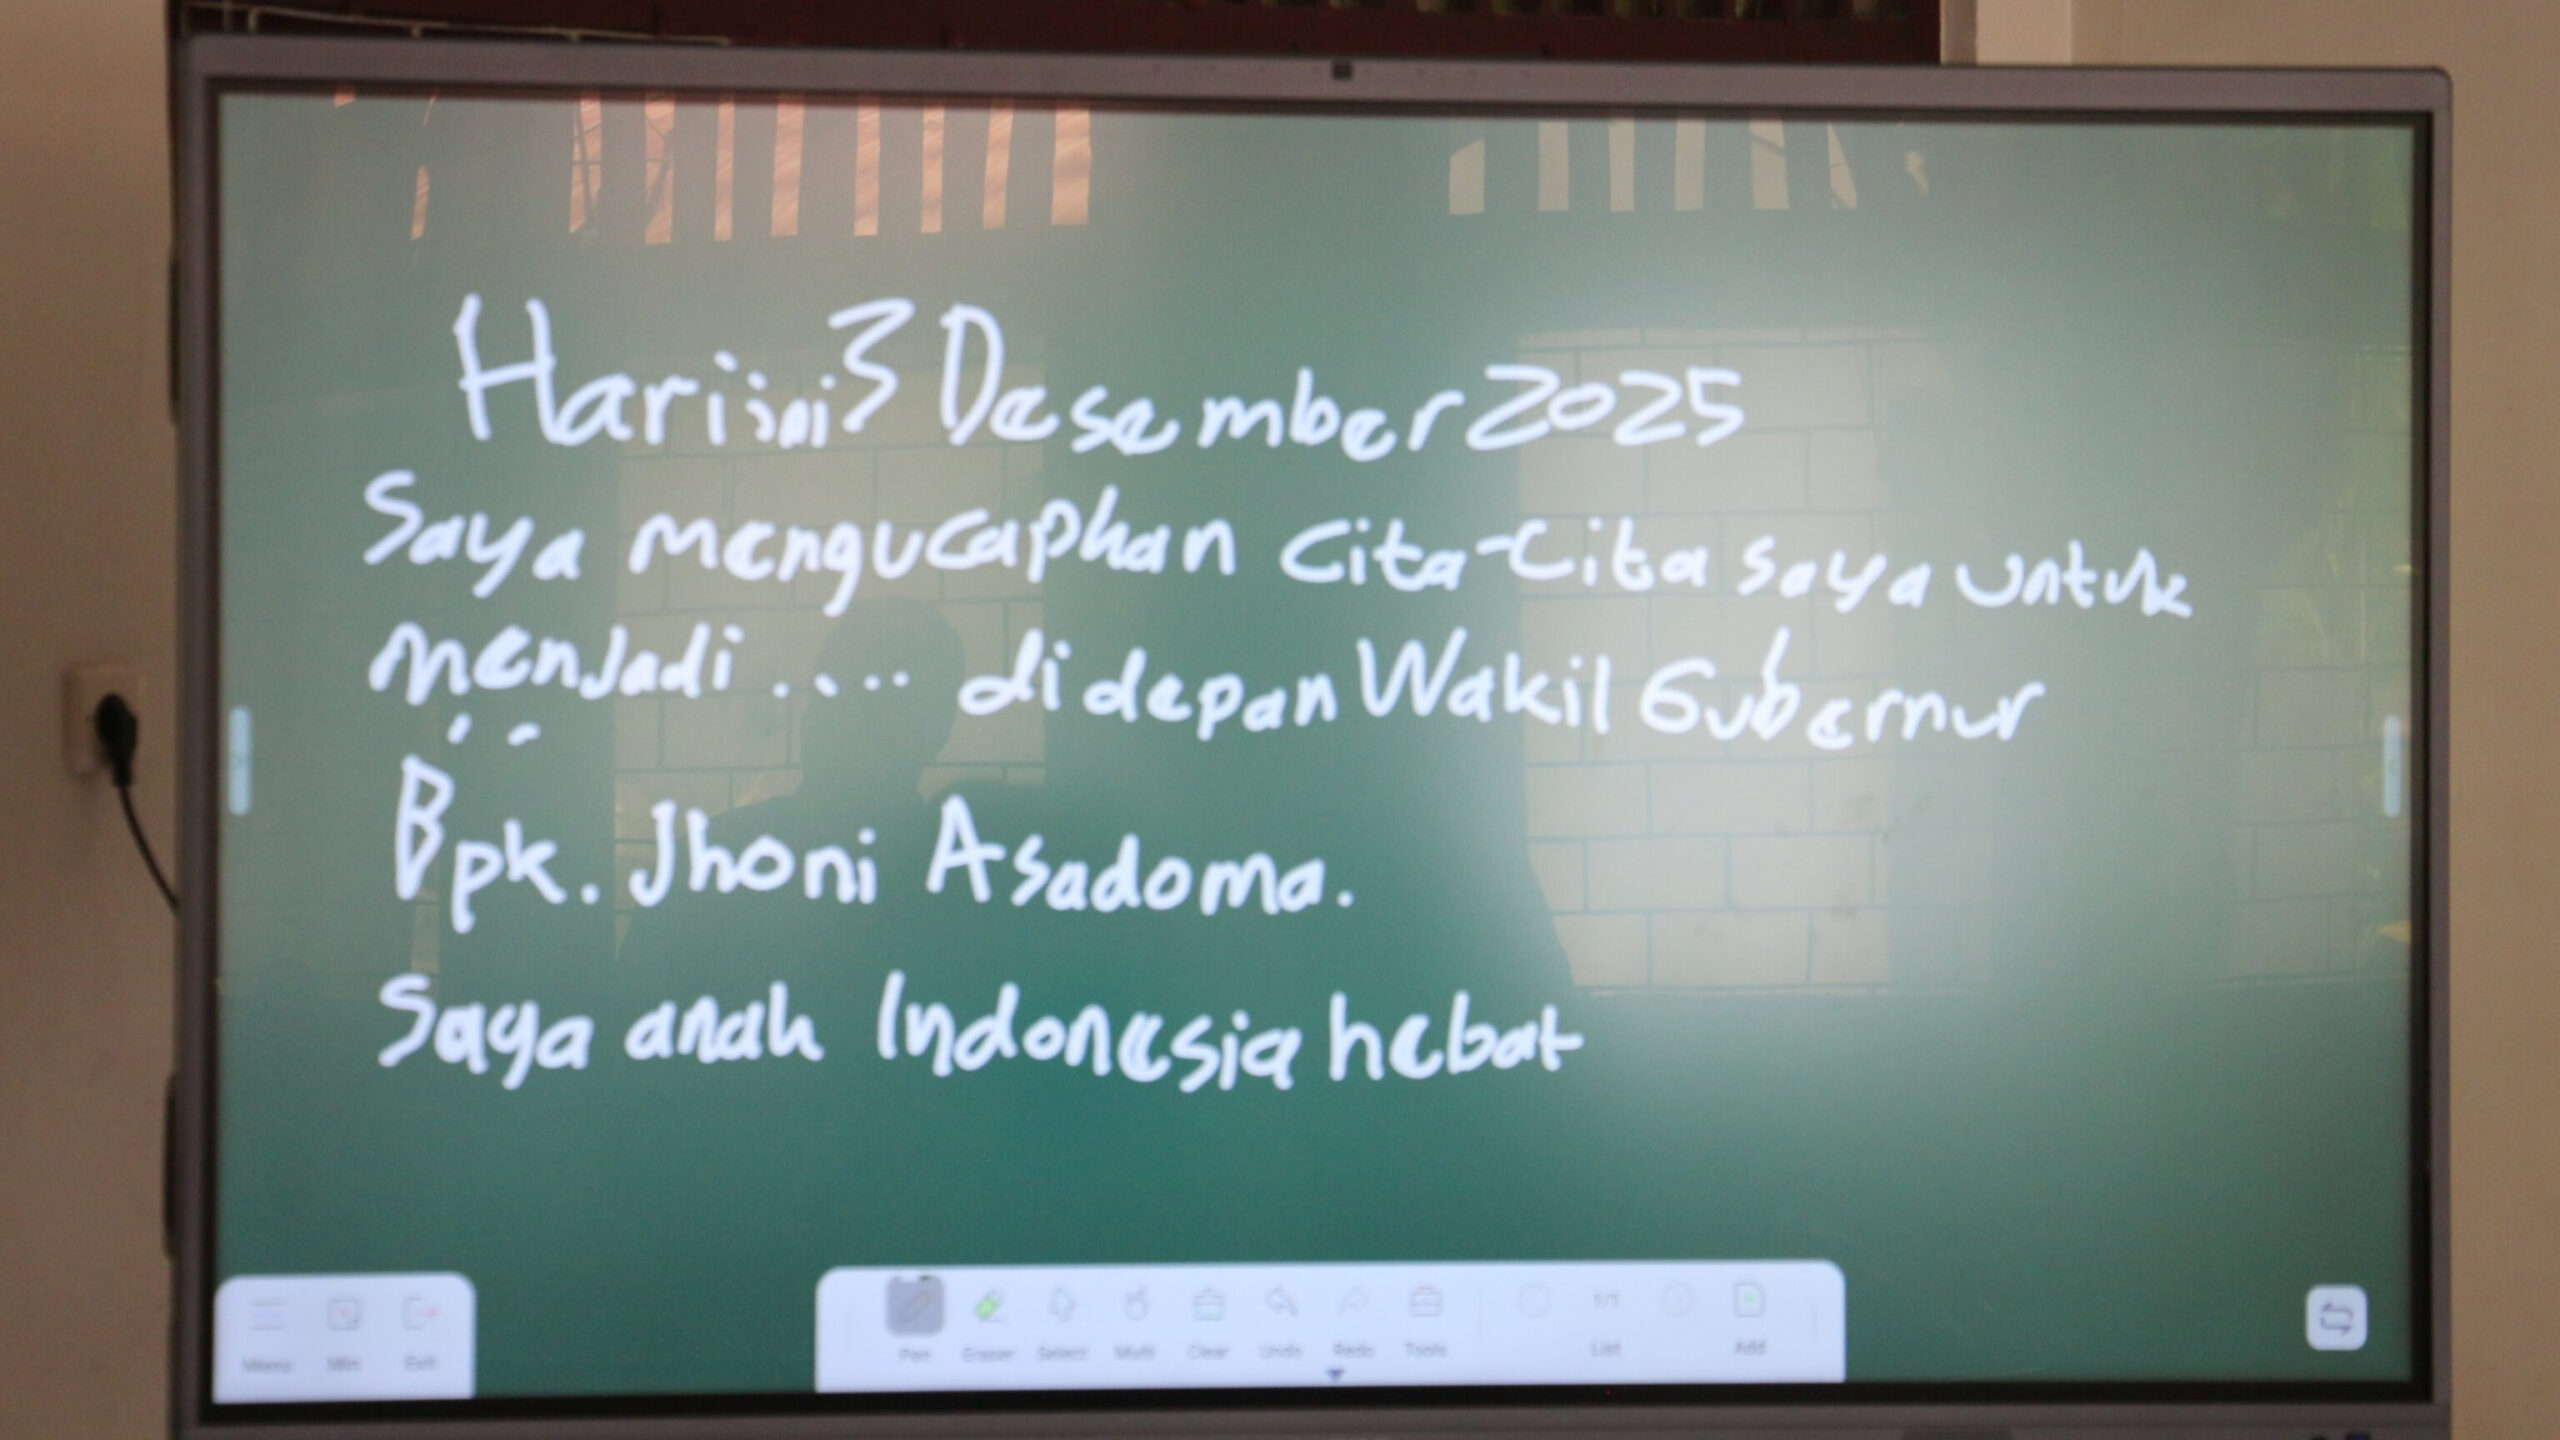 Hari ini 3 Desember 2025
Saya mengucapkan Cita-Cita saya untuk
menjadi .... di depan Wakil Gubernur
Bpk. Jhoni Asadoma.
Saya anak Indonesia hebat
Menu Min Exit
Pen Eraser Select Multi Clear Undo Redo Tools 1/1 List Add